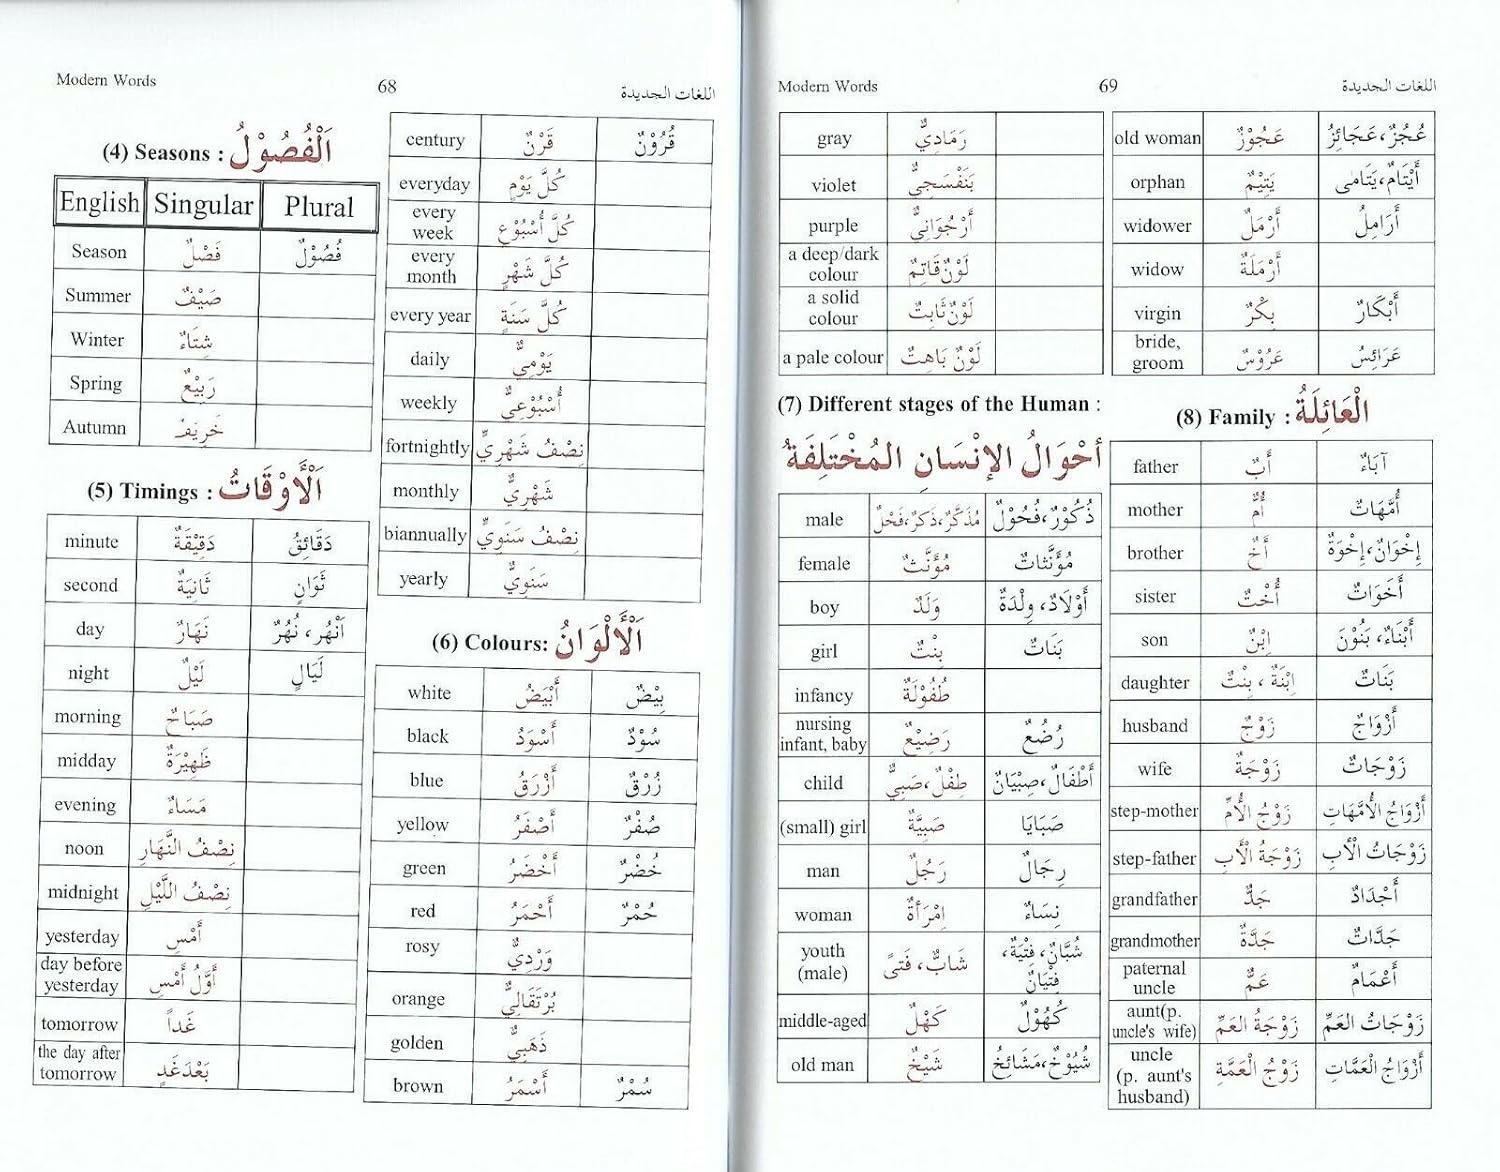 Modern Words 68 اللغات الجديدة
(4) Seasons : اَلْفُصُوْلُ
English Singular Plural
Season فَصْلٌ فُصُوْلٌ
Summer صَيْفٌ
Winter شِتَاءٌ
Spring رَبِيْعٌ
Autumn خَرِيفٌ
(5) Timings : اَلْأَوْقَاتُ
minute دَقِيْقَةٌ دَقَائِقُ
second ثَانِيَةٌ ثَوَانٍ
day نَهَارٌ اَنْهُر، نُهُرٌ
night لَيْلٌ لَيَالٍ
morning صَبَاحٌ
midday ظَهِيْرَةٌ
evening مَسَاءٌ
noon نِصْفُ النَّهَارِ
midnight نِصْفُ اللَّيْلِ
yesterday أَمْسِ
day before
yesterday أَوَّلُ أَمْسِ
tomorrow غَداً
the day after
tomorrow بَعْدَغَدٍ
century قَرْنٌ قُرُوْنٌ
everyday كُلَّ يَوْمٍ
every
week كُلَّ أُسْبُوْعٍ
every
month كُلَّ شَهْرٍ
every year كُلَّ سَنَةٍ
daily يَوْمِيٌّ
weekly أُسْبُوْعِيٌّ
fortnightly نِصْفُ شَهْرِيٍّ
monthly شَهْرِيٌّ
biannually نِصْفُ سَنَوِيٍّ
yearly سَنَوِيٌّ
(6) Colours: اَلْأَلْوَانُ
white أَبْيَضُ بِيْضٌ
black أَسْوَدُ سُوْدٌ
blue أَزْرَقُ زُرْقٌ
yellow أَصْفَرُ صُفْرٌ
green أَخْضَرُ خُضْرٌ
red أَحْمَرُ حُمْرٌ
rosy وَرْدِيٌّ
orange بُرْتَقَالِيٌّ
golden ذَهَبِيٌّ
brown أَسْمَرُ سُمْرٌ
Modern Words 69 اللغات الجديدة
gray رَمَادِيٌّ
violet بَنَفْسَجِيٌّ
purple أَرْجُوَانِيٌّ
a deep/dark
colour لَوْنٌ قَاتِمٌ
a solid
colour لَوْنٌ ثَابِتٌ
a pale colour لَوْنٌ بَاهِتٌ
(7) Different stages of the Human :
أحْوَالُ الإنْسَانِ المُخْتَلِفَةُ
male مُذَكَّرٌ،ذَكَرٌ،فَحْلٌ ذُكُوْرٌ،فُحُوْلٌ
female مُؤَنَّثٌ مُؤَنَّثَاتٌ
boy وَلَدٌ أَوْلَادٌ، وِلْدَةٌ
girl بِنْتٌ بَنَاتٌ
infancy طُفُوْلَةٌ
nursing
infant, baby رَضِيْعٌ رُضُعٌ
child طِفْلٌ،صَبِيٌّ أَطْفَالٌ،صِبْيَانٌ
(small) girl صَبِيَّةٌ صَبَايَا
man رَجُلٌ رِجَالٌ
woman اِمْرَأةٌ نِسَاءٌ
youth
(male) شَابٌّ، فَتىً شُبَّانٌ، فِتْيَةٌ، فِتْيَانٌ
middle-aged كَهْلٌ كُهُوْلٌ
old man شَيْخٌ شُيُوْخٌ،مَشَائِخُ
old woman عَجُوْزٌ عُجُزٌ،عَجَائِزُ
orphan يَتِيْمٌ أَيْتَامٌ،يَتَامٰى
widower أَرْمَلٌ أَرَامِلُ
widow أَرْمَلَةٌ
virgin بِكْرٌ أَبْكَارٌ
bride,
groom عَرُوْسٌ عَرَائِسُ
(8) Family : الْعَائِلَةُ
father أَبٌ آبَاءٌ
mother أُمٌّ أُمَّهَاتٌ
brother أَخٌ إِخْوَانٌ،إِخْوَةٌ
sister أُخْتٌ أَخَوَاتٌ
son اِبْنٌ أَبْنَاءٌ، بَنُوْنَ
daughter اِبْنَةٌ ، بِنْتٌ بَنَاتٌ
husband زَوْجٌ أَزْوَاجٌ
wife زَوْجَةٌ زَوْجَاتٌ
step-mother زَوْجُ الْأُمِّ أَزْوَاجُ الْأُمَّهَاتِ
step-father زَوْجَةُ الْأَبِ زَوْجَاتُ الْأَبِ
grandfather جَدٌّ أَجْدَادٌ
grandmother جَدَّةٌ جَدَّاتٌ
paternal
uncle عَمٌّ أَعْمَامٌ
aunt(p.
uncle's wife) زَوْجَةُ العَمِّ زَوْجَاتُ العَمِّ
uncle
(p. aunt's
husband) زَوْجُ الْعَمَّةِ أَزْوَاجُ الْعَمَّاتِ